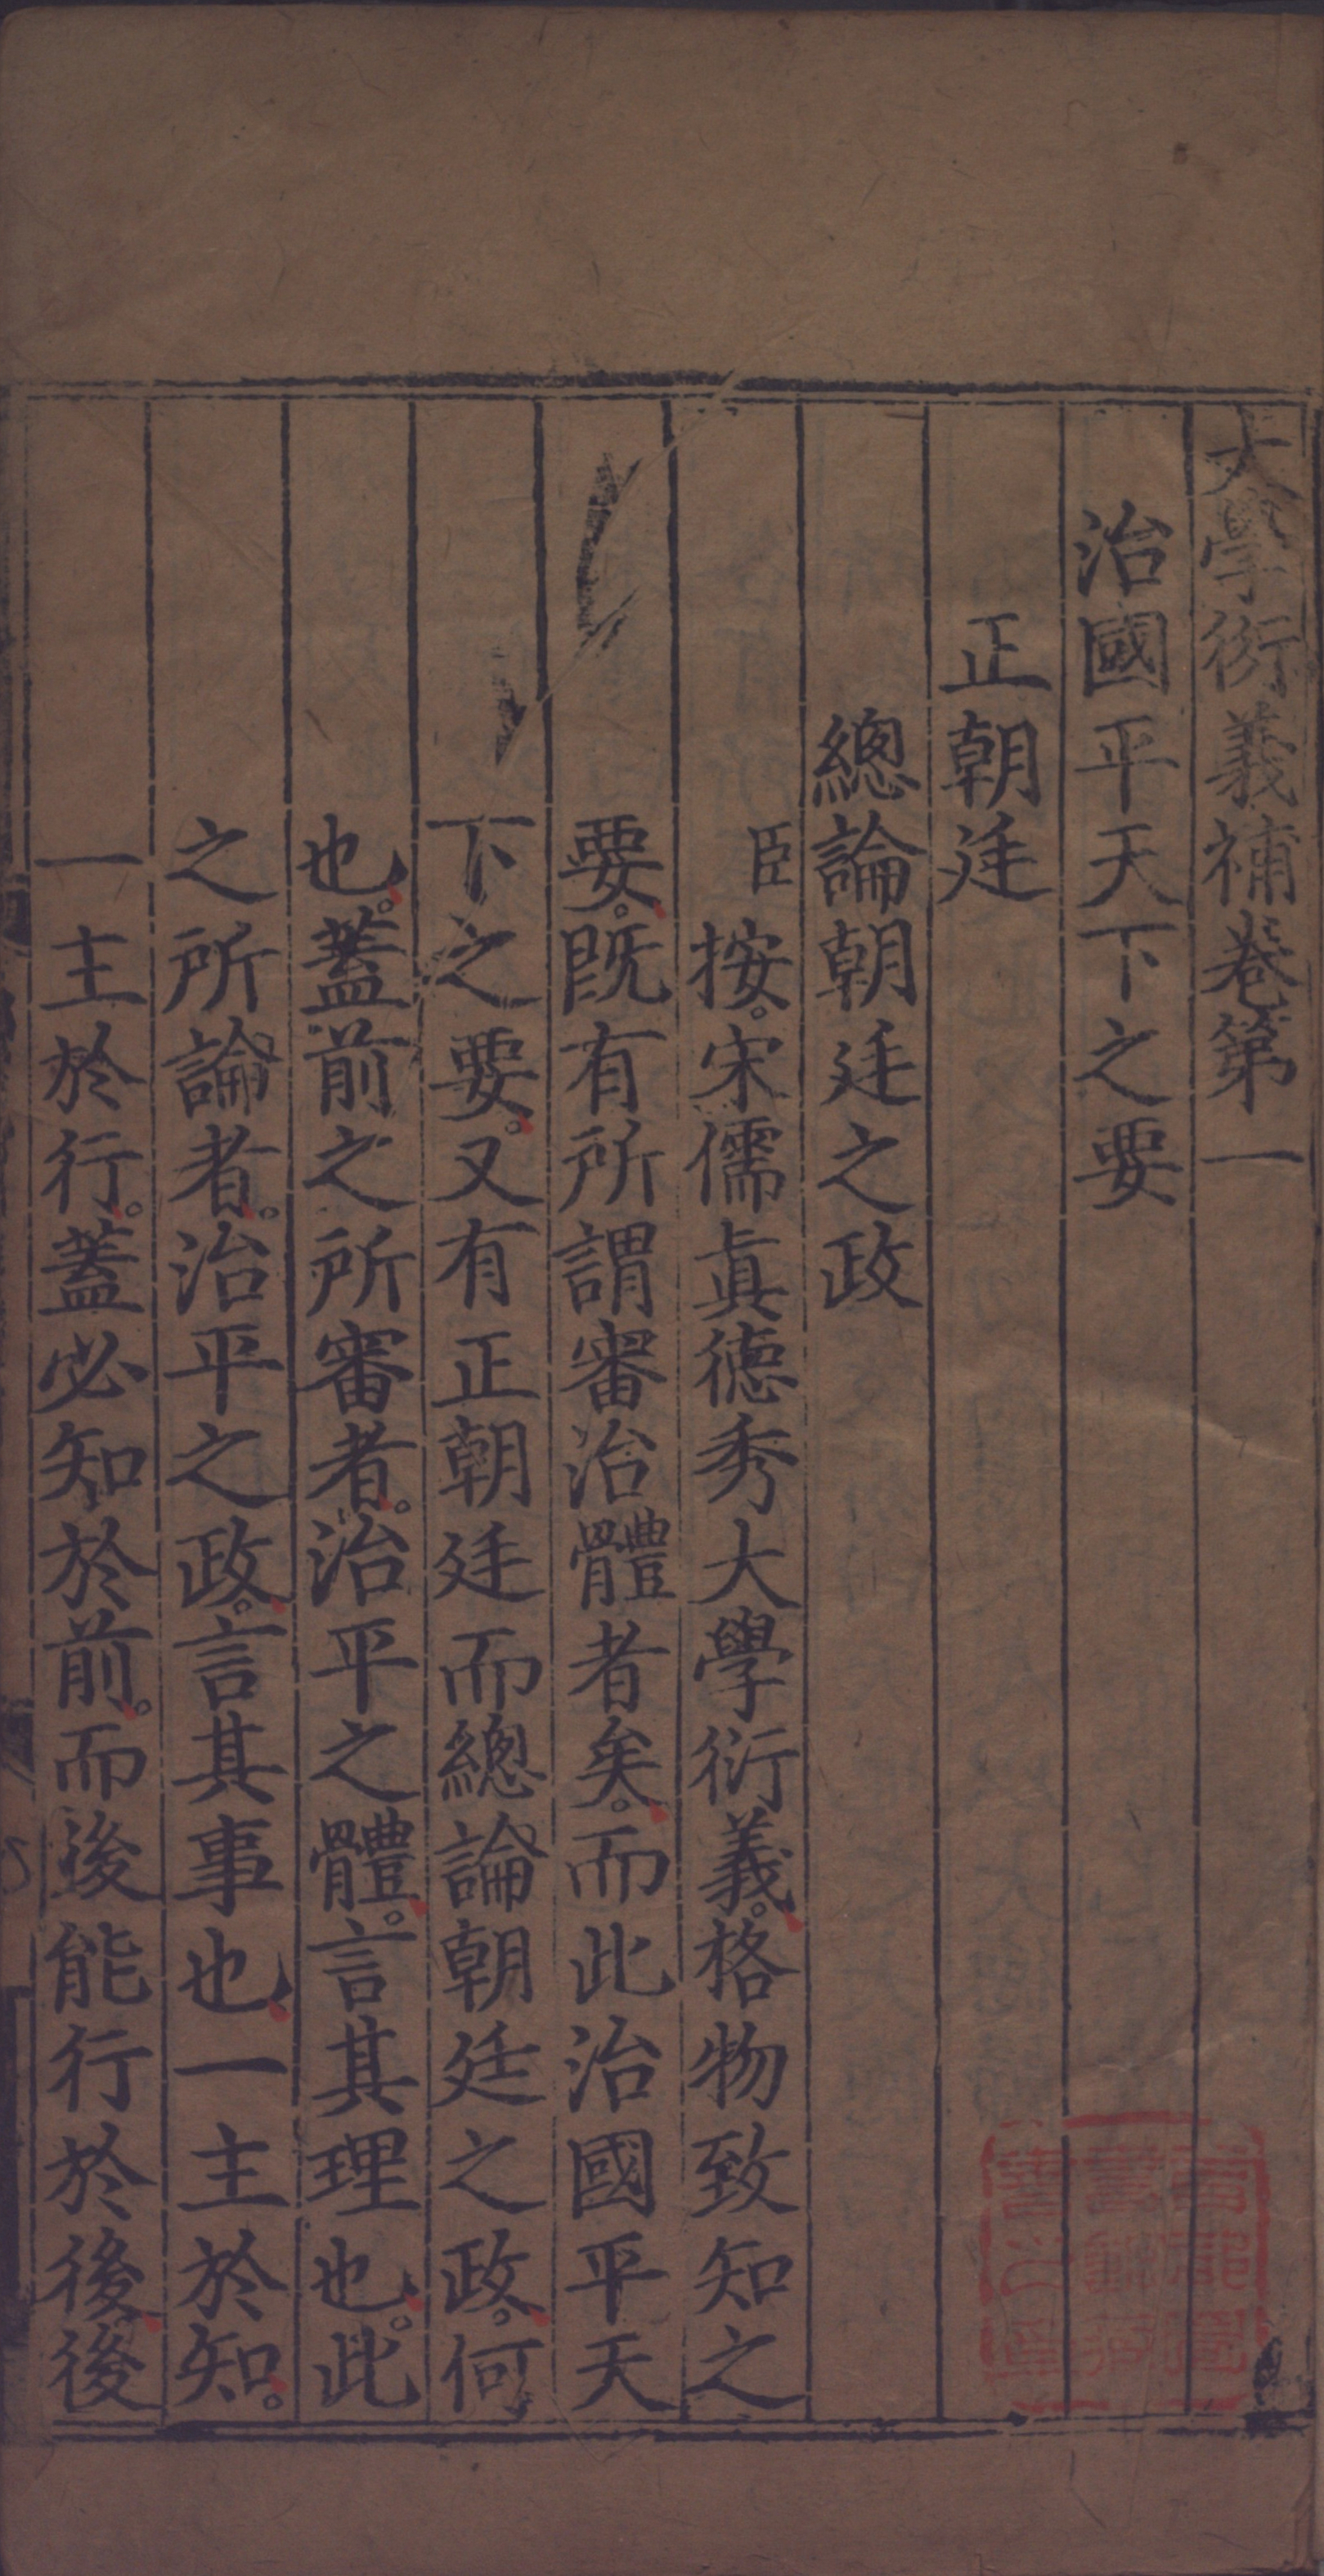 大學衍義補卷第一
治國平天下之要
正朝廷
總論朝廷之政
臣按。宋儒眞德秀大學衍義。格物致知之
要。既有所謂審治體者矣。而此治國平天
下之要。又有正朝廷而總論朝廷之政。何
也。蓋前之所審者。治平之體。言其理也。此
之所論者。治平之政。言其事也。一主於知。
一主於行。蓋必知於前。而後能行於後。後